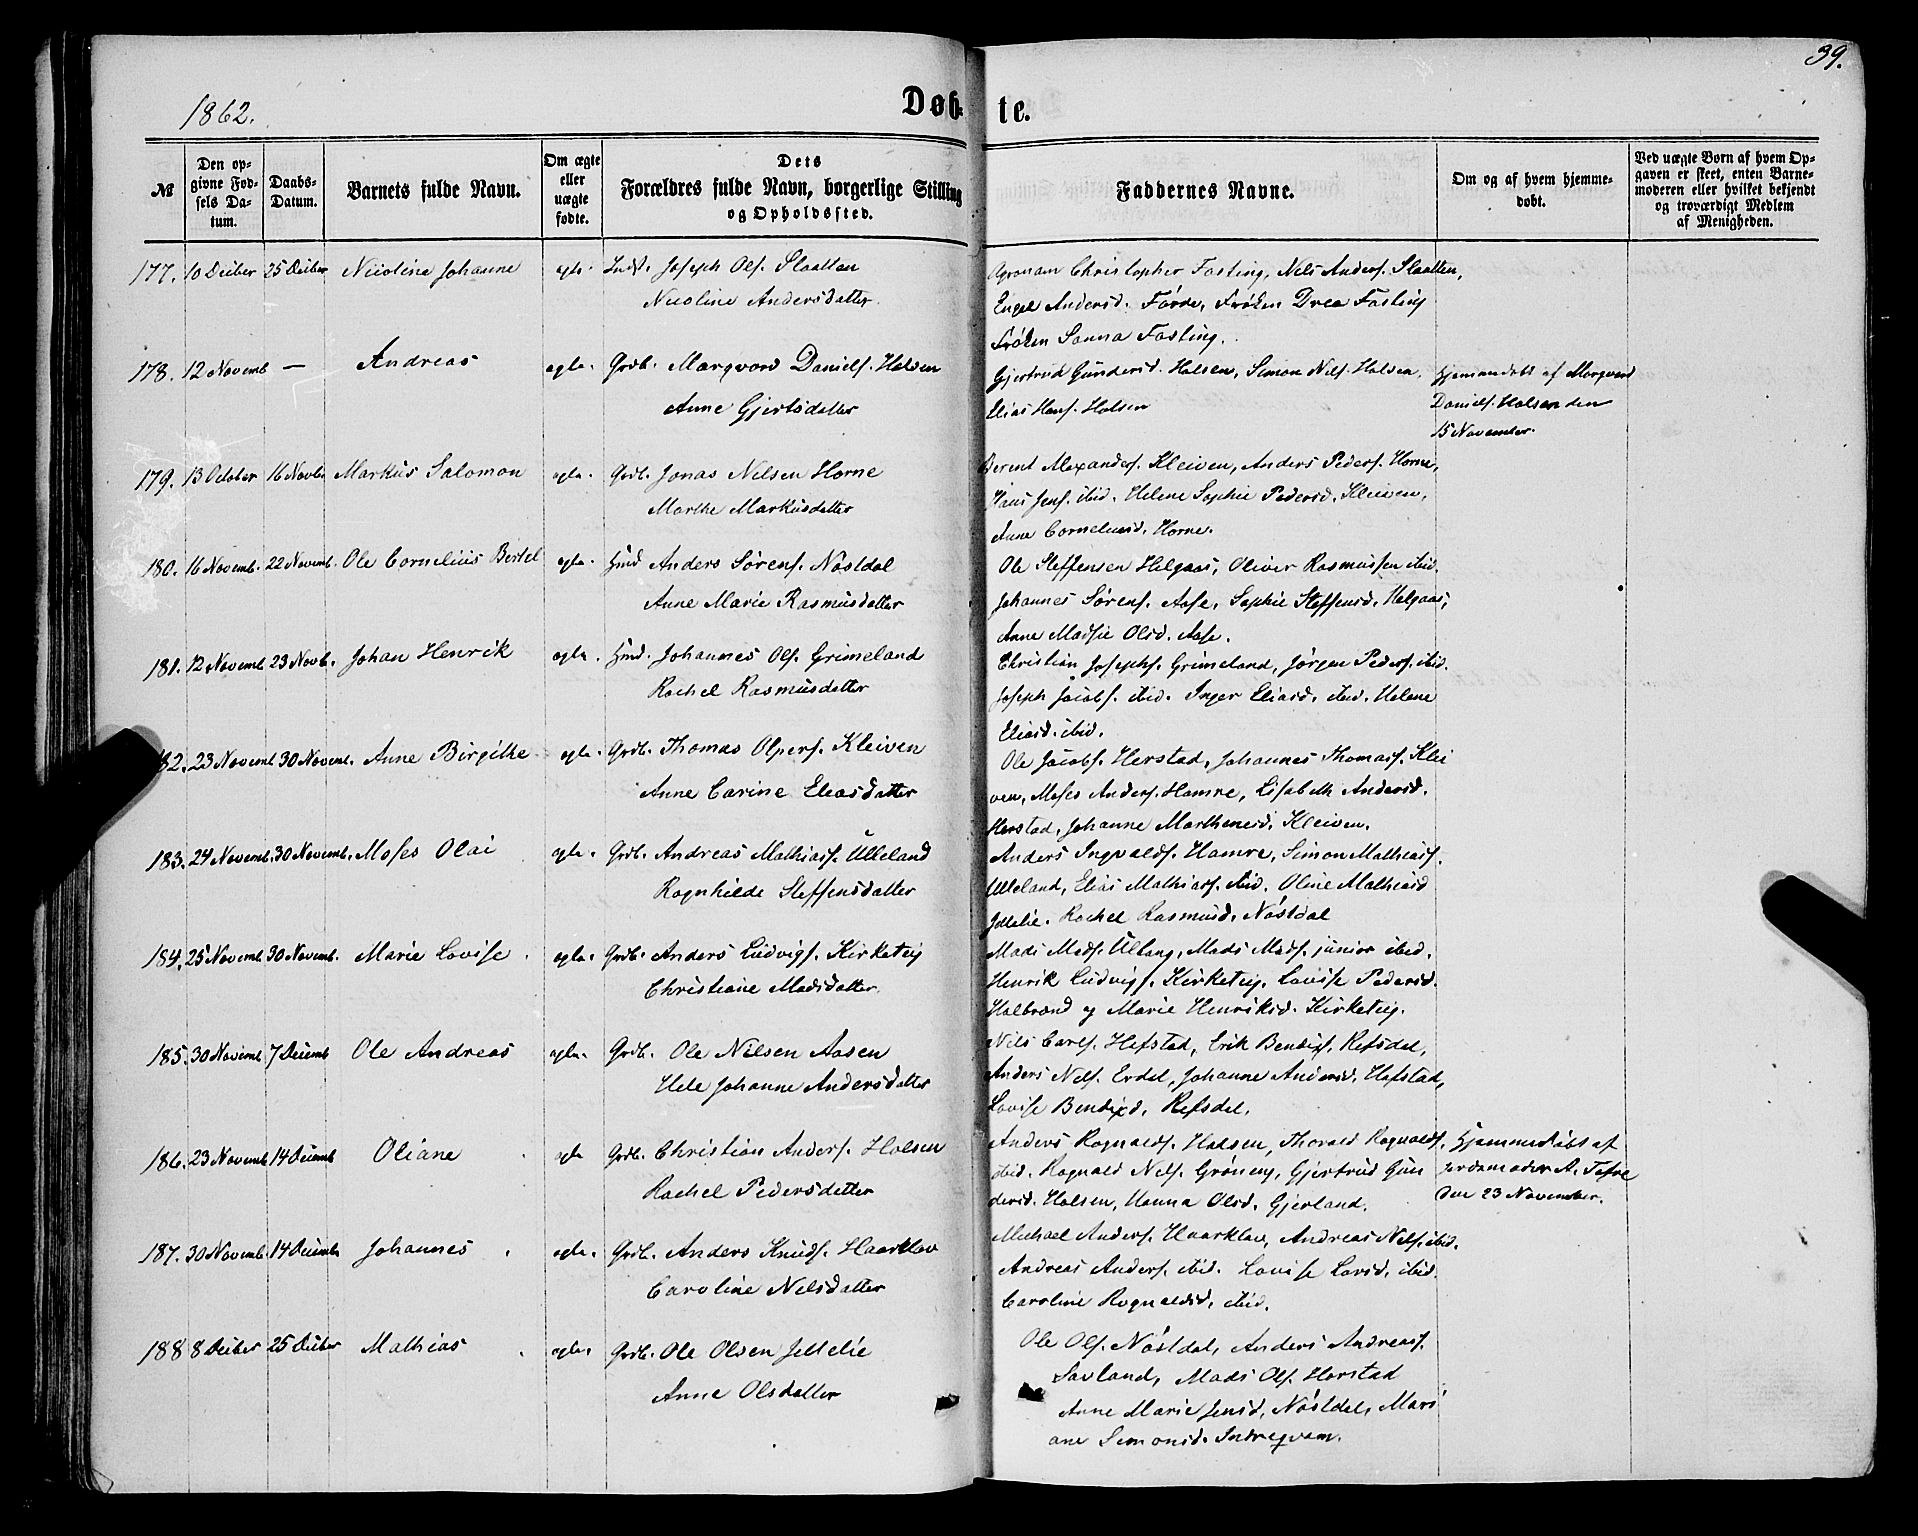 39.
1862.
Døbte.
№
Den opgivne Fødsels Datum.
Daabs-Datum.
Barnets fulde Navn.
Om ægte eller uægte fødte.
Dets Forældres fulde Navn, borgerlige Stilling og Opholdssted.
Faddernes Navne.
Om og af hvem hjemmedøbt.
Ved uægte Børn af hvem Opgaven er skeet, enten Barnemoderen eller hvilket bekjendt og troværdigt Medlem af Menigheden.
177. 10 Deciber 25 Deciber Nicoline Johanne egte. Indst. Joseph Olss. Slaatten
Nicoline Andersdatter.
Agronom Christopher Fasting, Nils Anderss. Slaatten,
Engel Andersd. Førde, Frøken Drea Fasting
Frøken Sanna Fasting.
178. 12 Novemb — Andreas egte. Grdb. Marqvard Daniels. Holsen
Anne Gjertsdatter
Gjertrud Gundersd. Holsen, Simon Nilss. Holsen,
Elias Hanss. Holsen
Hjemmedøbt af Marqvard
Daniels. Holsen den
15 November.
179. 13 October 16 Novbr Markus Salomon egte. Grdb. Jonas Nilsen Horne
Marthe Markusdatter
Berent Alexanders. Kleiven, Anders Peders. Horne,
Hans Jenss. ibid. Helene Sophie Pedersd. Kleiven,
Anne Corneliusd. Horne.
180. 16 Novemb. 22 Novemb. Ole Cornelius Bertel egte. Hmd Anders Sørenss. Nøstdal
Anne Marie Rasmusdatter
Ole Steffensen Helgaas, Oliver Rasmussen ibid.
Johannes Sørenss. Aase, Sophie Steffensd. Helgaas,
Anne Madsie Olsd. Aase.
181. 12 Novemb 23 Novb. Johan Henrik egte. Hmd. Johannes Olss. Grimeland
Rachel Rasmusdatter
Christian Josephs. Grimeland, Jørgen Peders. ibid.
Joseph Jacobs. ibid. Inger Eliasd. ibid. Helene
Eliasd. ibid.
182. 23 Novemb 30 Novemb. Anne Birgithe egte. Grdb. Thomas Olperss. Kleiven
Anne Carine Eliasdatter
Ole Jacobs. Herstad, Johannes Thomass. Klei
ven, Moses Anderss. Hamre, Lisabeth Andersd.
Herstad, Johanne Marthinesd. Kleiven.
183. 24 Novemb. 30 Novemb. Moses Olai egte. Grdb. Andreas Mathiass. Ulleland
Ragnhilde Steffensdatter
Anders Ingvalds. Hamre, Simon Mathiass.
Ulleland, Elias Mathiass. ibid. Oline Mathiasd
Jellelie. Rachel Rasmusd. Nøstdal
184. 25 Novemb. 30 Novemb. Marie Lovise egte. Grdb. Anders Ludvigs. Kirketeig
Christiane Madsdatter.
Mads Madss. Ullang, Mads Madss. junior ibid.
Henrik Ludvigs. Kirketeig, Lovise Pedersd.
Halbrend og Marie Henriksd. Kirketeig.
185. 30 Novemb. 7 Decemb Ole Andreas egte. Grdb. Ole Nilsen Aasen
Hele Johanne Andersdatter
Nils Carls. Hefstad, Erik Bendixs. Refsdal,
Anders Nilss. Erdal, Johanne Andersd. Hafstad,
Lovise Bendixd. Refsdal.
186. 23 Novemb 14 Decemb Oliane egte Grdb. Christian Anderss. Holsen
Rachel Pedersdatter
Anders Rognalds. Holsen, Thorald Rognalds.
ibid. Rognald Nilss. Grøneng, Gjertrud Gun
dersd. Holsen, Hanna Olsd. Gjerland.
Hjemmedøbt af
Jordemoder A. Tefre
den 23 November.
187. 30 Novemb 14 Decemb Johannes egte. Grdb. Anders Knuds. Haarklav
Caroline Nilsdatter
Michael Anders. Haarklav, Andreas Nilss. ibid.
Andreas Anderss. ibid. Lovise Larsd. ibid.
Caroline Rognaldsd. ibid.
188 8 Deciber 25 Deciber Mathias egte. Grdb. Ole Olsen Jellelie
Anne Olsdatter
Ole Olss. Nøstdal, Anders Andreass.
Savland, Mads Olss. Herstad
Anne Marie Jensd. Nøstdal, Mari
ane Simonsd. Indreqvam.